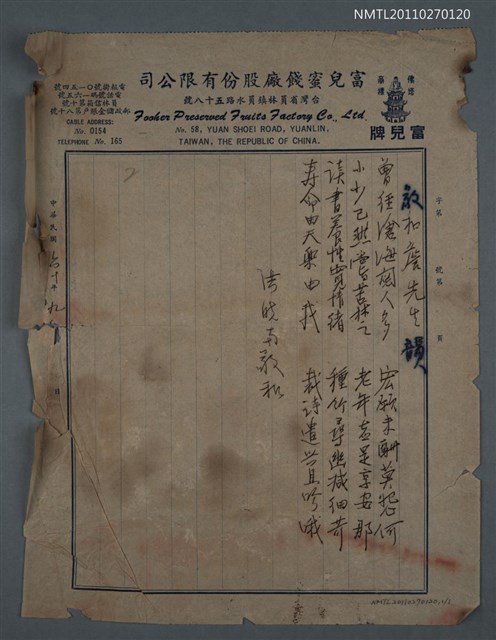 NMTL20110270120
富兒蜜餞廠股份有限公司
台灣省員林鎮員水路五十八號
Fooher Preserved Fruits Factory Co., Ltd.
No. 58, YUAN SHOEI ROAD, YUANLIN,
TAIWAN, THE REPUBLIC OF CHINA.
CABLE ADDRESS:
No. 0154
TELEPHONE No. 165
佛塔
商標
富兒牌
字第 號第 頁
敬和詹先生韻
曾經滄海閱人多 宏願未酬莫怨何
小少已然嘗苦 老年
讀書養性 情緒 種竹尋幽減細苛
寿命由天樂由我 裁詩遣興且吟哦
曉南敬和
中華民國六十年九 日
NMTL20110270120